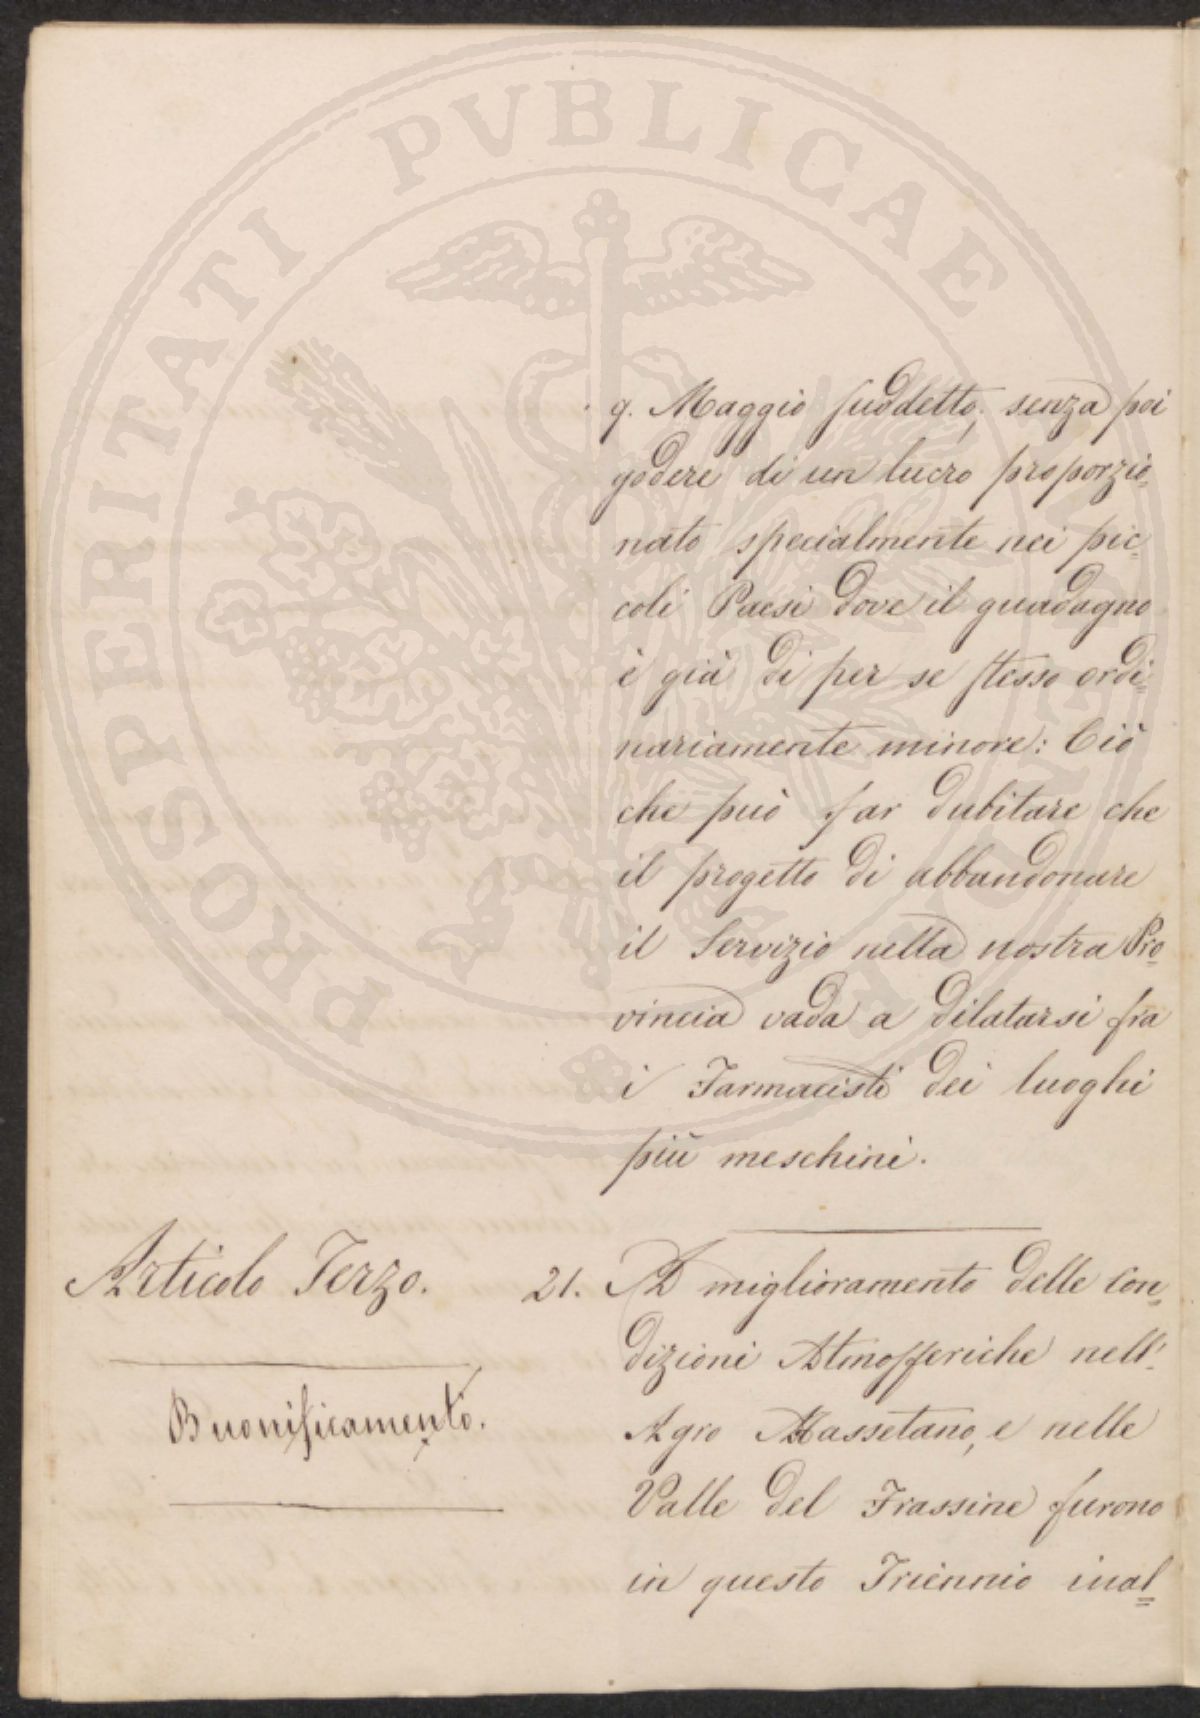 PROSPERITATI PVBLICAE
9. Maggio suddetto, senza poi
godere di un lucro proporzio=
nato specialmente nei pic=
coli Paesi dove il guadagno
è già di per se stesso ordi=
nariamente minore: Ciò
che può far dubitare che
il progetto di abbandonare
il Servizio nella nostra Pro=
vincia vada a dilatarsi fra
i Farmacisti dei luoghi
più meschini.
Articolo Terzo.
Buonificamento.
21. Al miglioramento delle Con=
dizioni Atmosferiche nell'
Agro Massetano, e nelle
Valle del Frassine furono
in questo Triennio inal=